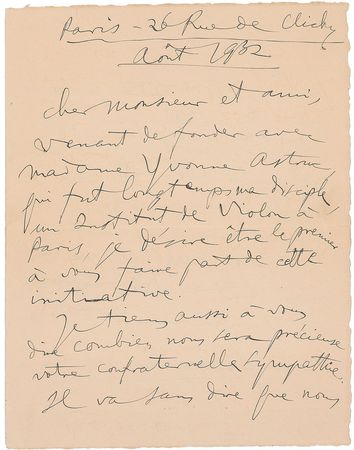 Paris - 26 Rue de Clichy
Août 1932
cher Monsieur et ami,
venant de fonder avec
madame Yvonne Astruc
qui fut longtemps ma disciple,
un Institut de Violon à
Paris, je désire être le premier
à vous faire part de cette
initiative.
Je tiens aussi à vous
dire combien nous sera précieuse
votre confraternelle sympathie.
Il va sans dire que nous